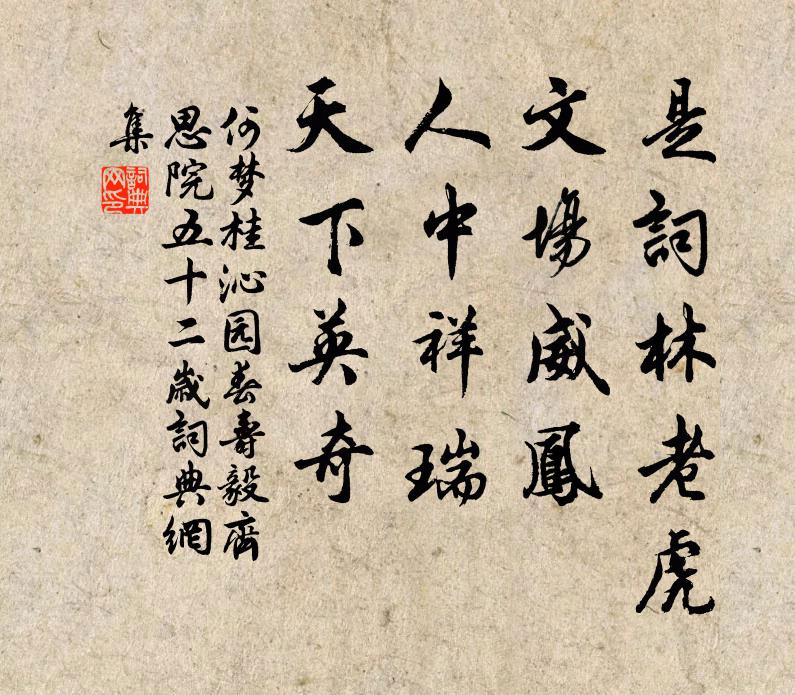 是詞林老虎
文場威鳳
人中祥瑞
天下英奇
何梦桂沁园春壽毅齋
思院五十二歲詞典網
集
詞典
网印